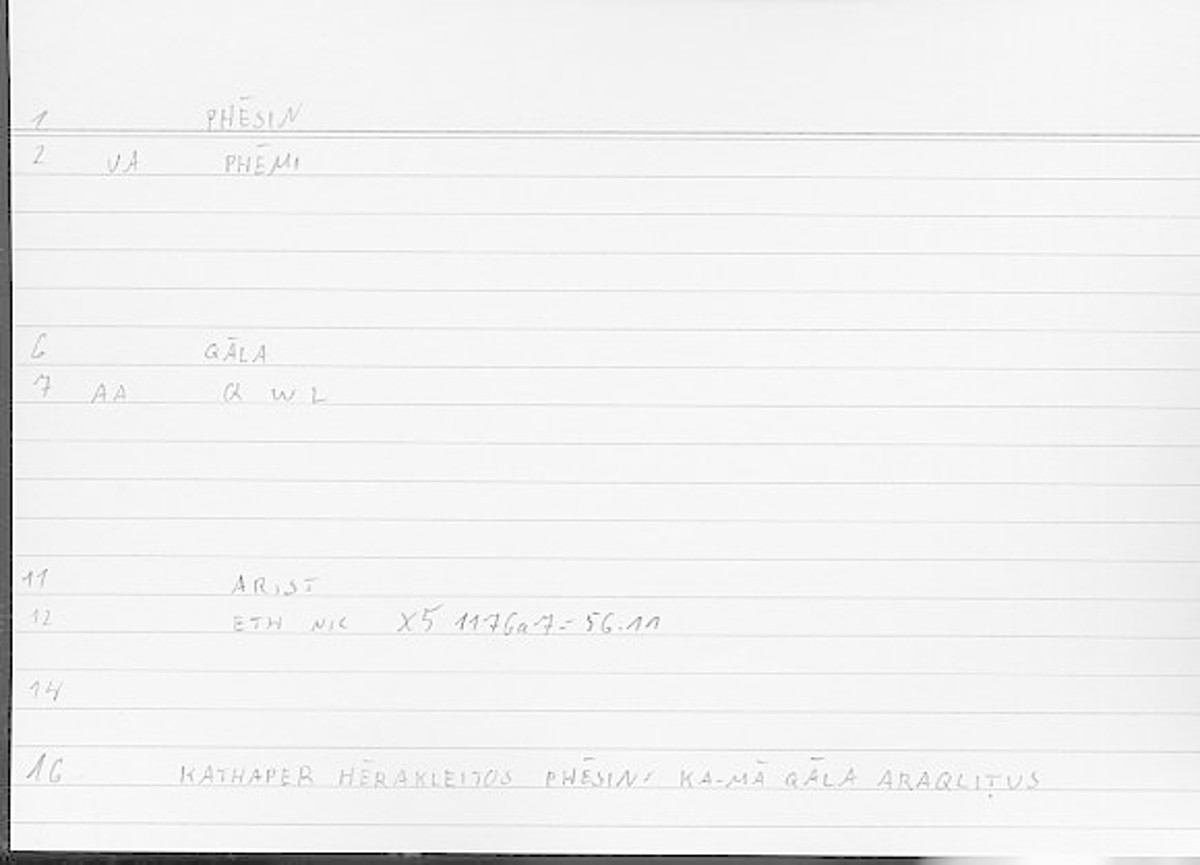 1 PHĒSIN
2 VA PHĒMI
6 QĀLA
7 AA Q W L
11 ARIST
12 ETH NIC X5 1176a7= 56.11
14
16 KATHAPER HĒRAKLEITOS PHĒSIN: KA-MĀ QĀLA ARAQLIṬUS